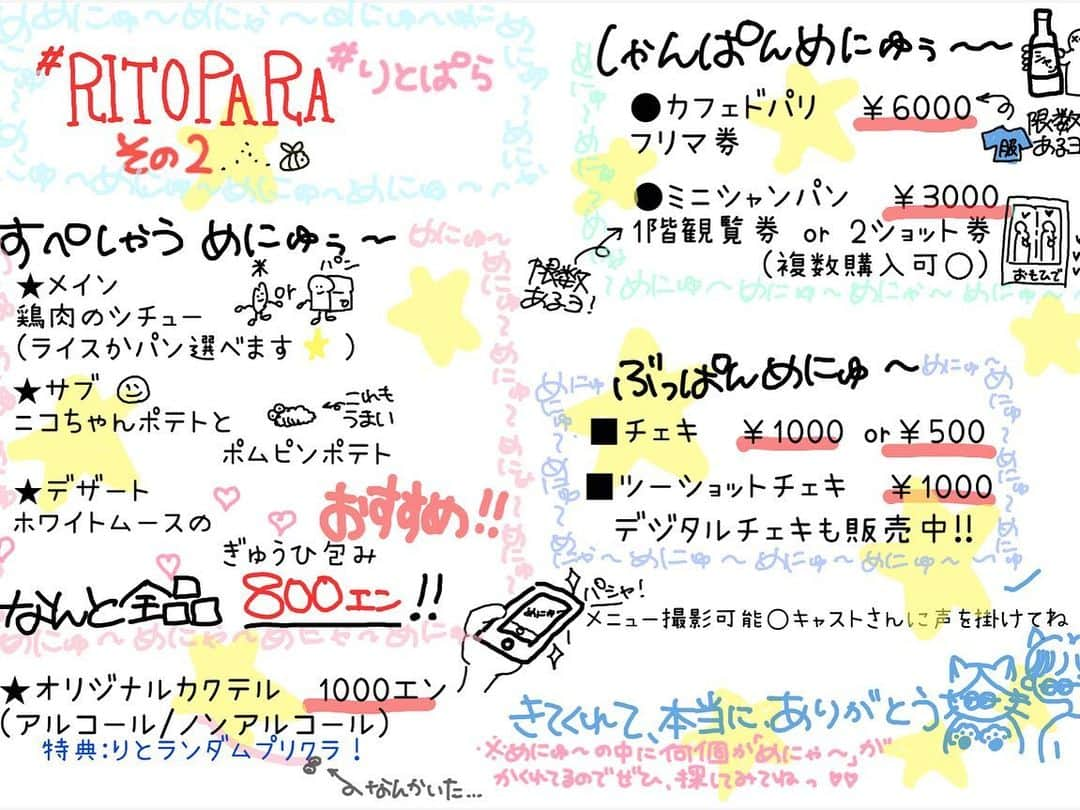 #RITOPARA
#りとぱら
その2
すぺしゃう めにゅぅ〜
★メイン
米 or パン
鶏肉のシチュー
(ライスかパン選べます⭐)
★サブ
ニコちゃんポテトと
ポムピンポテト
これも
うまい
★デザート
ホワイトムースの
ぎゅうひ包み
おすすめ!!
なんと全品 800エン!!
★オリジナルカクテル 1000エン
(アルコール/ノンアルコール)
特典:りとランダムプリクラ!
なんかいた...
しゃんぱんめにゅぅ〜〜
シャン
●カフェドパリ ¥6000
フリマ券
服
限数
あるヨ
●ミニシャンパン ¥3000
1階観覧券 or 2ショット券
(複数購入可〇)
限数
あるヨ!
おもひで
ぶっぱんめにゅ〜
■チェキ ¥1000 or ¥500
■ツーショットチェキ ¥1000
デジタルチェキも販売中!!
めにゅー
パシャ!
メニュー撮影可能〇キャストさんに声を掛けてね
きてくれて、本当に、ありがとう
※めにゅ〜の中に何個か「めにゃ〜」が
かくれてるのでぜひ、探してみてねっ♡♡